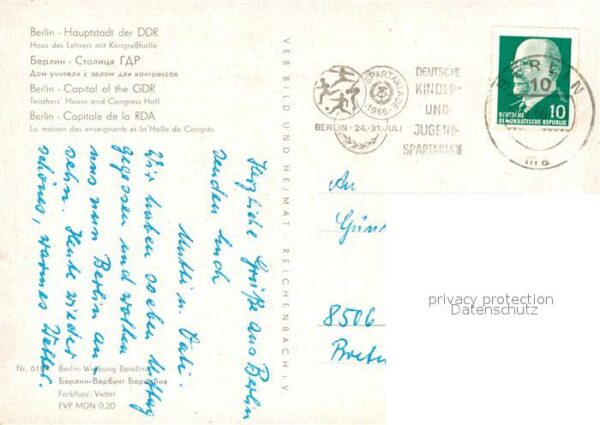 Berlin - Hauptstadt der DDR
Haus des Lehrers mit Kongreßhalle
Берлин - Столица ГДР
Дом учителя с залом для конгрессов
Berlin - Capital of the GDR
Teachers' House and Congress Hall
Berlin - Capitale de la RDA
La maison des enseignants et la Halle de Congrès
VEB BILD UND HEIMAT · REICHENBACH i. V.
SPARTAKIADE
1966
BERLIN - 24.-31. JULI
DEUTSCHE
KINDER-
UND-
JUGEND-
SPARTAKIADE
BERLIN
10
DEUTSCHE
DEMOKRATISCHE REPUBLIK
10
Herzliche Grüße aus Berlin
senden Euch
Mutti u. Vati.
Wir haben soeben Mittag
gegessen und wollen
uns nun Berlin an-
sehn. Heute wieder
schönes, warmes Wetter.
An
8506
privacy protection
Datenschutz
Berlin-Werbung Berolina
Берлин-Вербунг Беролина
Farbfoto: Vetter
EVP MDN 0,20